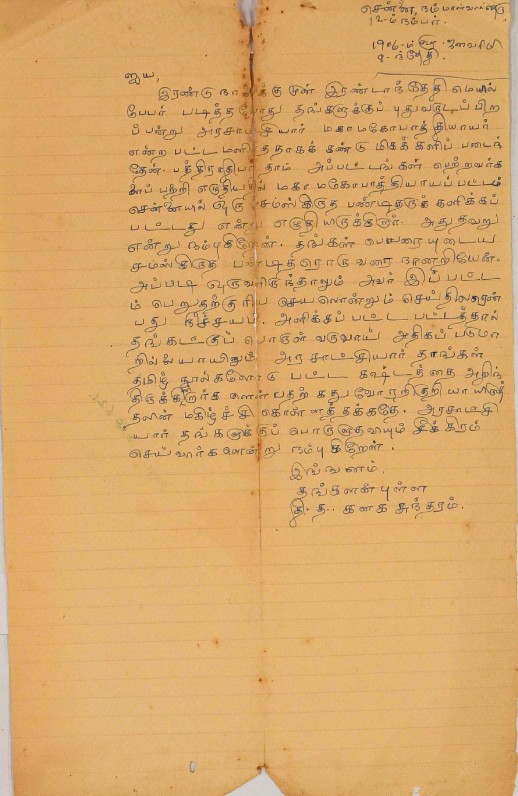 சென்னை, நம்மாழ்வார்
12-ம் நம்பர்.
1906-ம் ௵ ஜனவரி௴
8-ந்தேதி
ஐய,
இரண்டு நாளைக்கு முன் இரண்டாந்தேதி மெயில்
பேபர் படித்தபோது தங்களுக்குப் புதுவருடப் பிற
ப்பன்று அரசாட்சியார் மகாமகோபாத்தியாயர்
என்ற பட்டமளித்ததாகக் கண்டு மிகக்களிப் படைந்
தேன். பத்திராதிபர் தாம் அப்பட்டங்கள் பெற்றவர்க
ளைப் பற்றி எழுதியதில் மகாமகோபாத்தியாயப்பட்டம்
சென்னையில் ஒரு சம்ஸ்கிருத பண்டிதருக் களிக்கப்
பட்டது என்று எழுதியிருக்கிறார். அது தவறு
என்று நம்புகிறேன். தங்கள் பெயரையுடைய
சமஸ்கிருத பண்டிதரொருவரை நானறியேன்.
அப்படி ஒருவரிருந்தாலும் அவர் இப்பட்ட
ம் பெறுதற்குரிய செயலொன்றும் செய்திலரென்
பது நிச்சயம். அளிக்கப்பட்ட பட்டத்தால்
தங்கட்குப் பொருள் வருவாய் அதிகப் படுமா
றில்லையாயினும் அரசாட்சியார் தாங்கள்
தமிழ் நூல்களோடு பட்ட கஷ்டத்தை அறிந்
திருக்கிறார்க ளென்பதற் கது வோரறிகுறியா யிருத்
தலின் மகிழ்ச்சி கொள்ளத்தக்கதே. அரசாட்சி
யார் தங்களுக்குப் பொருளுதவியும் சீக்கிரம்
செய்வார்களென்று நம்புகிறேன்.
இங்ஙனம்,
தங்களன்புள்ள
தி. த. கனகசுந்தரம்.